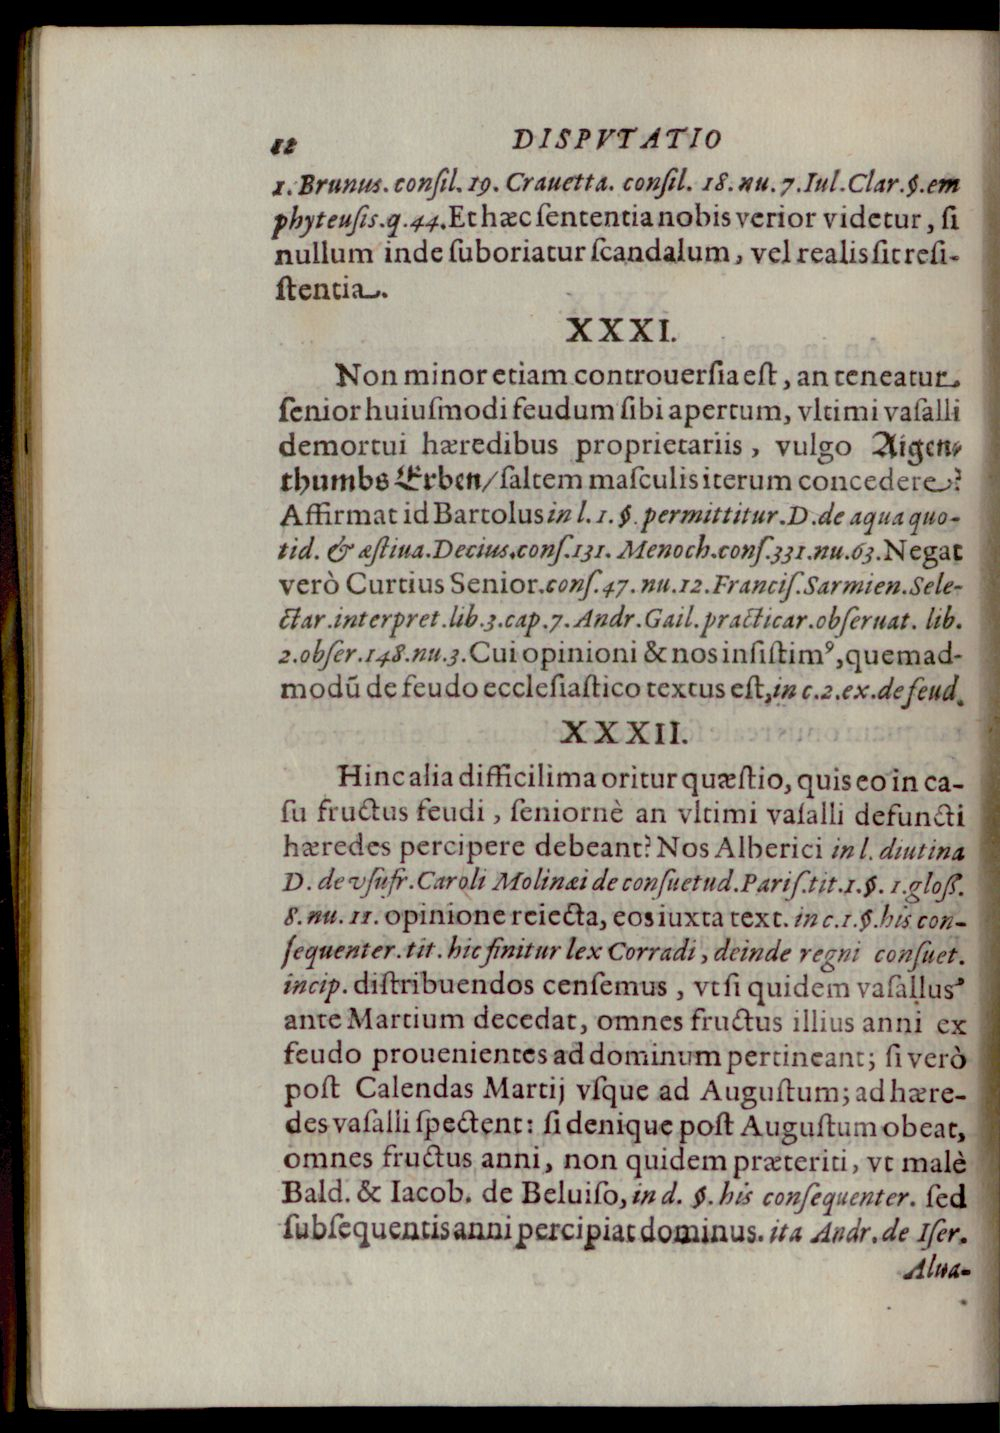 12 DISPVTATIO
1. Brunus. conſil. 19. Crauetta. conſil. 18. nu. 7. Iul. Clar. §. em
phyteuſis. q. 44. Et hæc ſententia nobis verior videtur, ſi
nullum inde ſuboriatur ſcandalum, vel realis ſit reſi-
ſtentia.
XXXI.
Non minor etiam controuerſia eſt, an teneatur
ſenior huiuſmodi feudum ſibi apertum, vltimi vaſalli
demortui hæredibus proprietariis, vulgo Aigen-
thumbs Erben/ ſaltem maſculis iterum concedere?
Affirmat id Bartolus in l. 1. §. permittitur. D. de aqua quo-
tid. & æſtiua. Decius. conſ. 131. Menoch. conſ. 331. nu. 63. Negat
verò Curtius Senior. conſ. 47. nu. 12. Franciſ. Sarmien. Sele-
ctar. interpret. lib. 3. cap. 7. Andr. Gail. practicar. obſeruat. lib.
2. obſer. 148. nu. 3. Cui opinioni & nos inſiſtimꝰ, quemad-
modū de feudo eccleſiaſtico textus eſt, in c. 2. ex. de feud.
XXXII.
Hinc alia difficilima oritur quæſtio, quis eo in ca-
ſu fructus feudi, ſeniornè an vltimi vaſalli defuncti
hæredes percipere debeant? Nos Alberici in l. diutina
D. de vſufr. Caroli Molinæi de conſuetud. Pariſ. tit. 1. §. 1. gloſſ.
8. nu. 11. opinione reiecta, eos iuxta text. in c. 1. §. his con-
ſequenter. tit. hic finitur lex Corradi, deinde regni conſuet.
incip. diſtribuendos cenſemus, vt ſi quidem vaſallus
ante Martium decedat, omnes fructus illius anni ex
feudo prouenientes ad dominum pertineant; ſi verò
poſt Calendas Martij vſque ad Auguſtum; ad hære-
des vaſalli ſpectent: ſi denique poſt Auguſtum obeat,
omnes fructus anni, non quidem præteriti, vt malè
Bald. & Iacob. de Beluiſo, in d. §. his conſequenter. ſed
ſubſequentis anni percipiat dominus. ita Andr. de Iſer.
Alua-